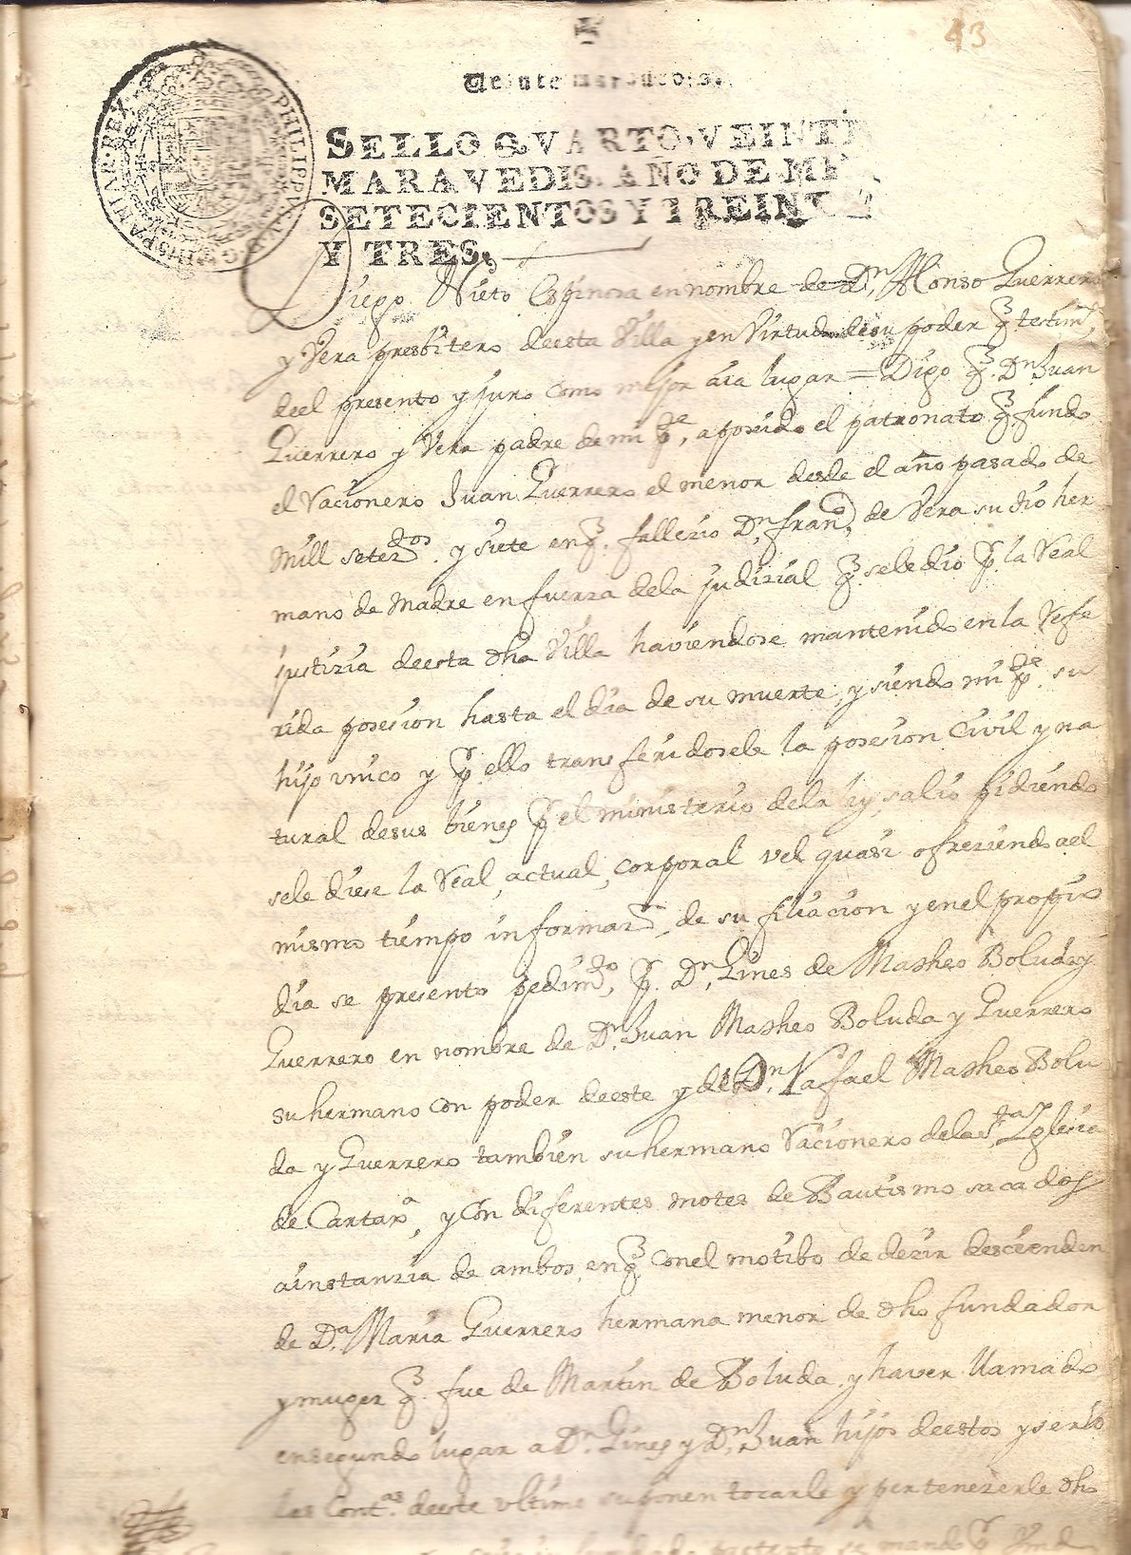 43
Veinte maravedis.
PHILIPPVS V D G HISPANIAR REX
SELLO QVARTO, VEINTE
MARAVEDIS, AÑO DE MIL
SETECIENTOS Y TREINTA
Y TRES.
Diego Nieto Espinosa en nombre de Dn. Alonso Guerrero
y Vera presbitero deesta Villa y en Virtud desu poder q. testimo.
deel presento y juro como mejor aia lugar = Digo q. Dn. Juan
Guerrero y Vera padre de mi pe., a poseido el patronato q. fundo
el Racionero Juan Guerrero el menor desde el año pasado de
Mill setezdos. y siete en q. fallezio Dn. Franco. de Vera su tio her
mano de Madre en fuerza dela judizial q. sele dio p. la Real
justizia deesta dha Villa haviendose mantenido en la Refe
rida posesion hasta el dia de su muerte, y siendo mi pe. su
hijo unico y p. ello transferidosele la posesion Civil y na
tural desus bienes p. el ministerio dela ley, salio pidiendo
sele diese la Real, actual, corporal vel quasi ofreziendo ael
mismo tiempo informazn. de su filiacion y enel propio
dia se presento pedimto. p. Dn. Gines de Matheo Boluda y
Guerrero en nombre de Dn. Juan Matheo Boluda y Guerrero
su hermano con poder deeste y de Dn. Rafael Matheo Bolu
da y Guerrero tambien su hermano Racionero dela Sta. Iglesia
de Cartaxa, y con diferentes motes de Bautismo sacados
a instanzia de ambos, en q. con el motibo de dezir descienden
de Da. Maria Guerrero hermana menor de dho fundador
y muger q. fue de Martin de Boluda, y haver llamado
en segundo lugar a Dn. Gines y Dn. Juan hijos deestos y serlo
las Contas. deeste ultimo suponen tocarle y pertenezerle dho